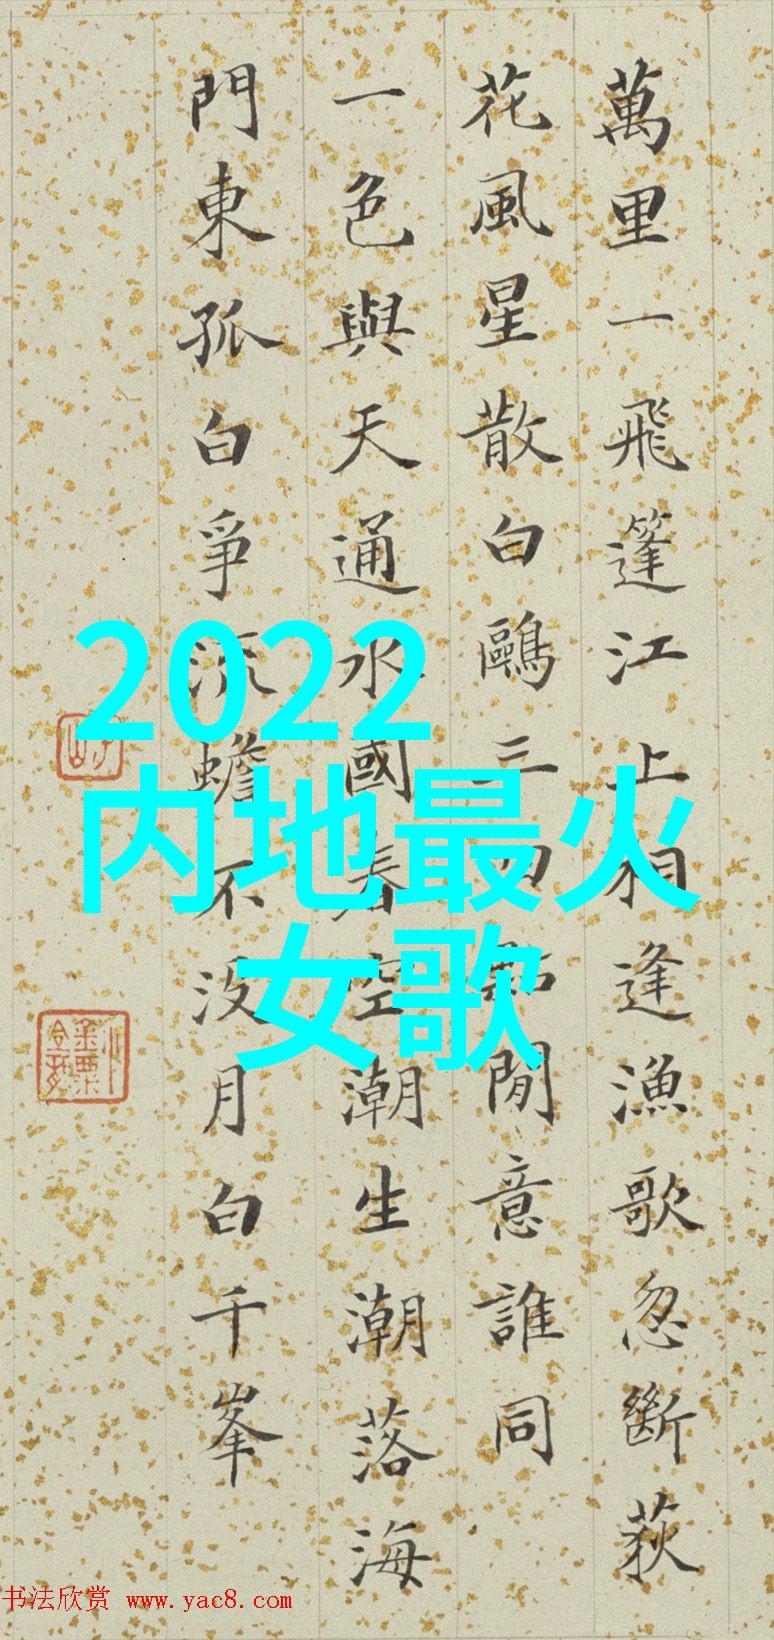 萬里一飛篷江上相逢漁歌忽斷荻
花風星散白鷗三四點閒意誰同
一色與天通水國春空潮生潮落海
門東孤白爭流蟾不没月白千峯
2022
内地最火
女歌
书法欣赏 www.yac8.com